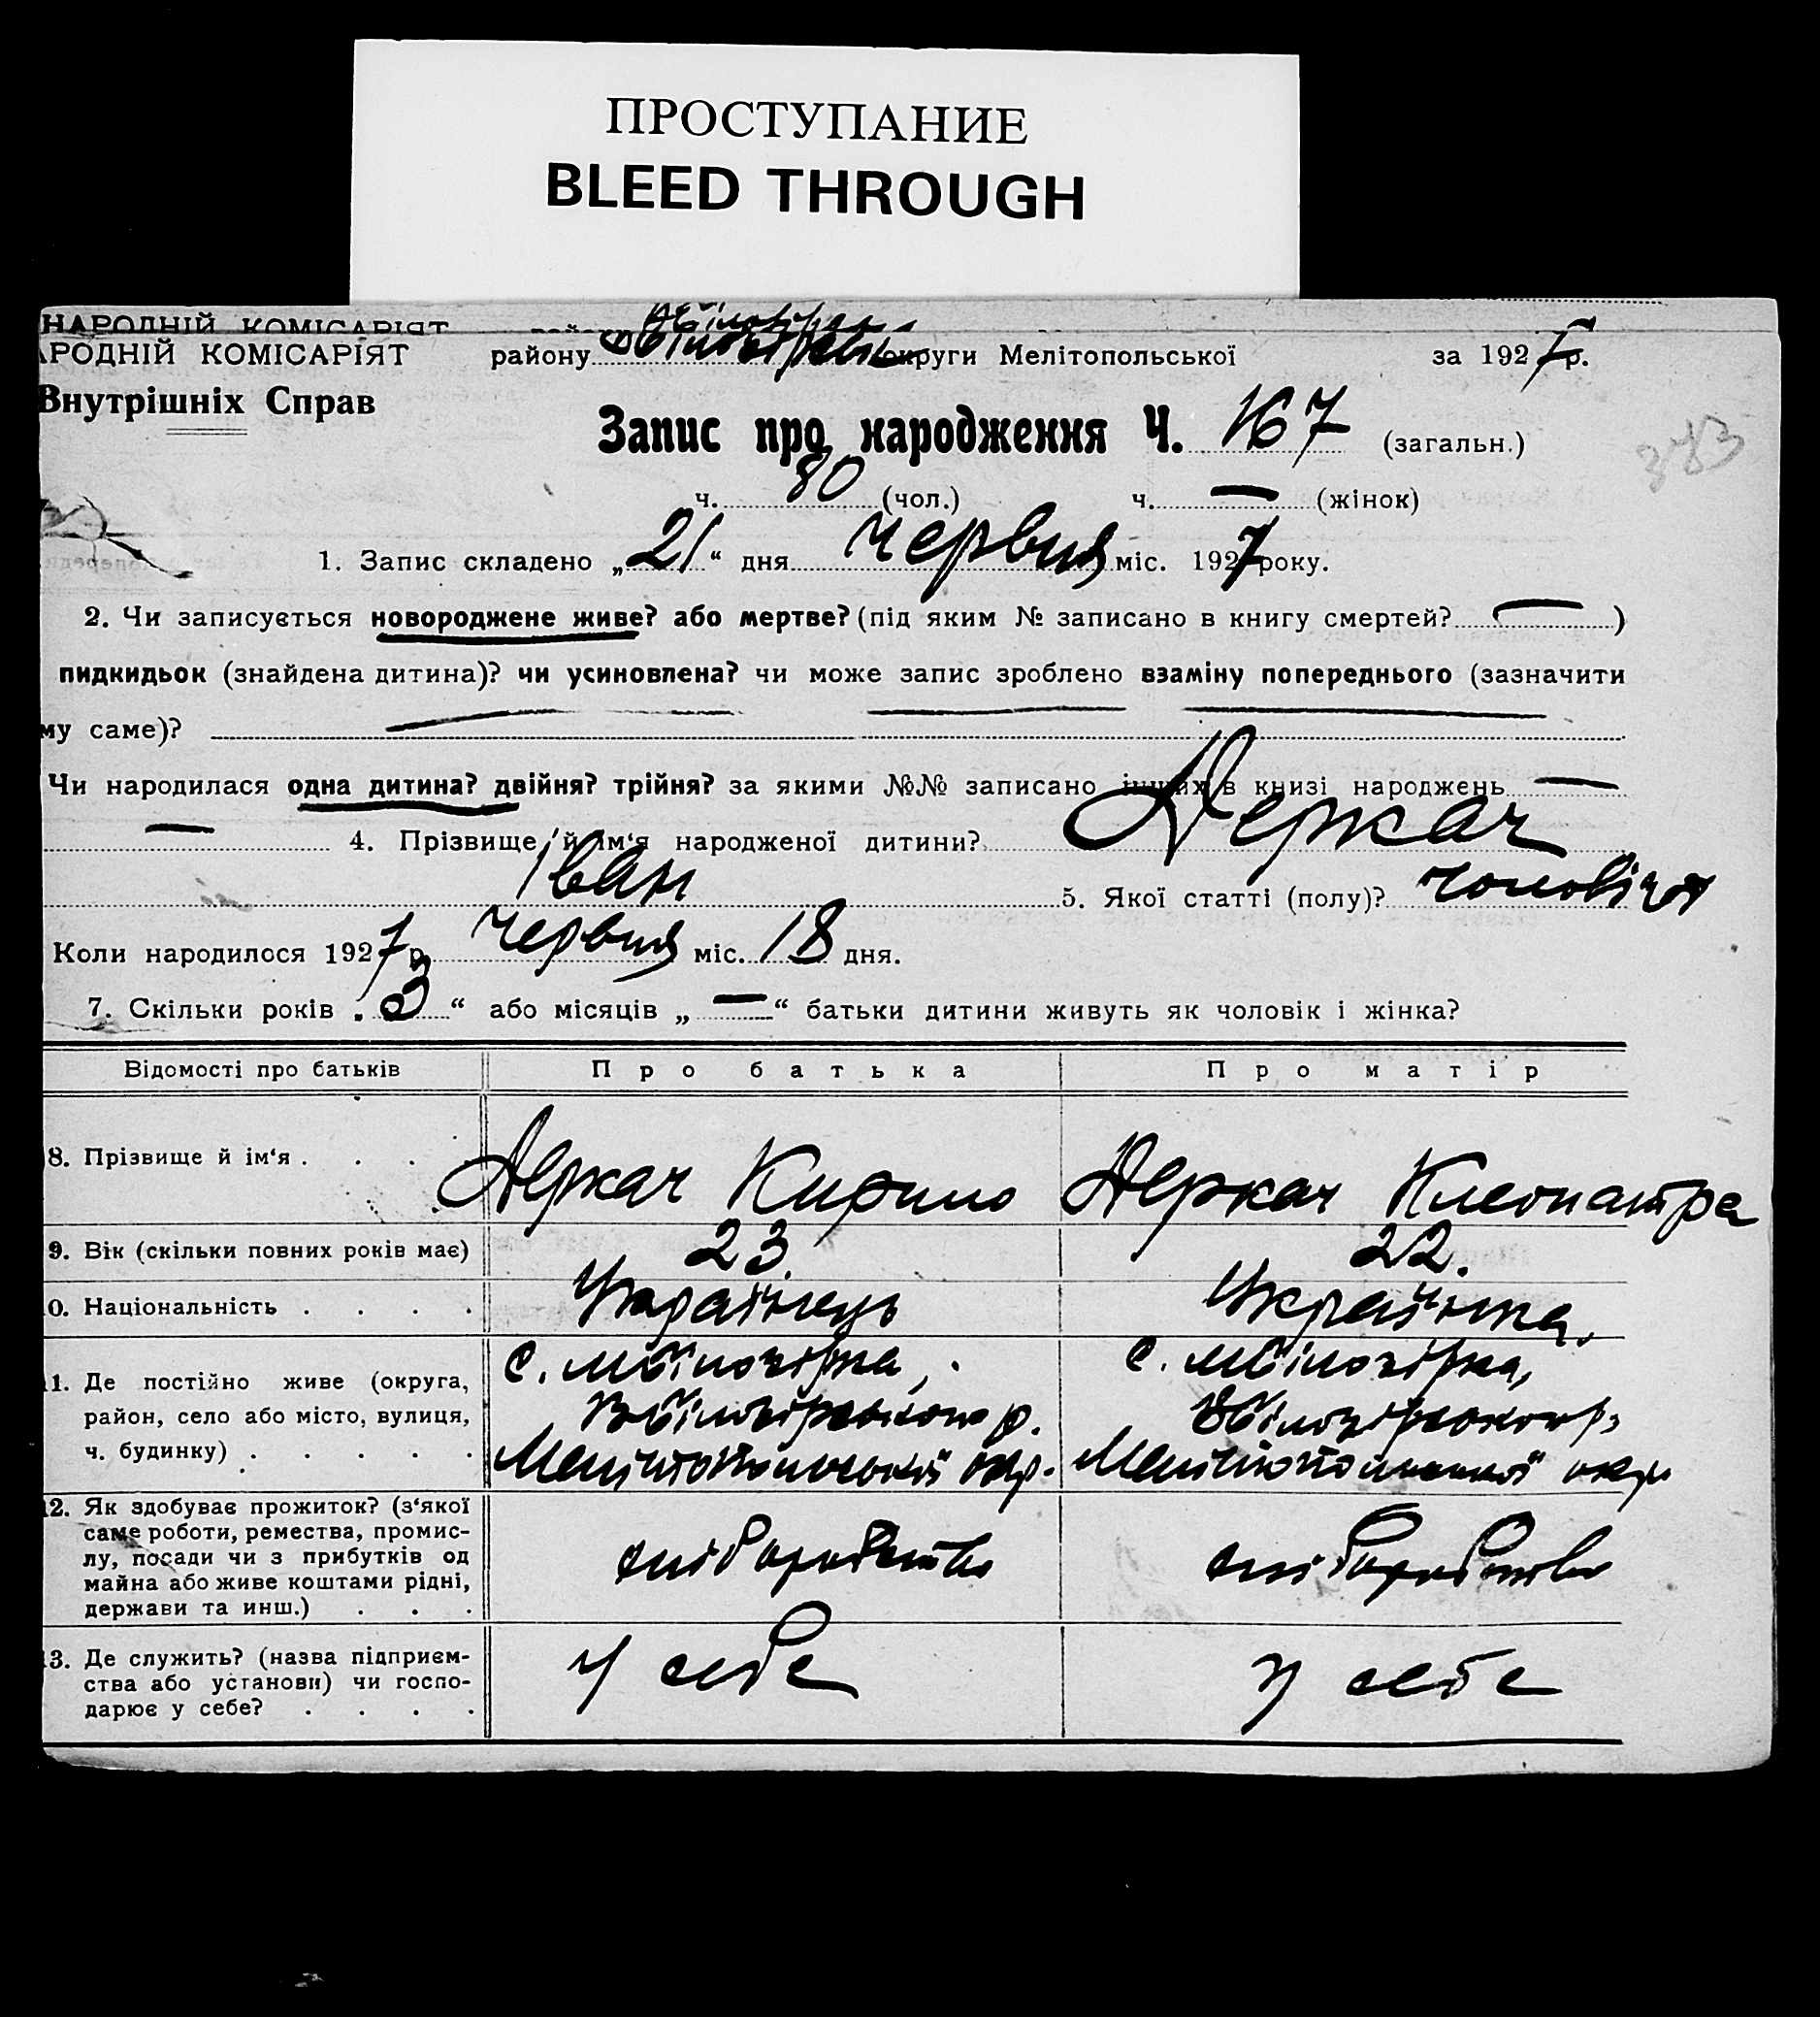 ПРОСТУПАНИЕ
BLEED THROUGH
НАРОДНІЙ КОМІСАРІЯТ
АРОДНІЙ КОМІСАРІЯТ району округи Мелітопольської за 1927 р.
Внутрішніх Справ
Запис про народження Ч. 167 (загальн.)
383
ч. 80 (чол.) ч. — (жінок)
1. Запис складено „21“ дня червня міс. 1927 року.
2. Чи записується новороджене живе? або мертве? (під яким № записано в книгу смертей? — )
пидкидьок (знайдена дитина)? чи усиновлена? чи може запис зроблено взаміну попереднього (зазначити
му саме)?
Чи народилася одна дитина? двійня? трійня? за якими №№ записано інших в книзі народжень —
— 4. Прізвище й ім‘я народженої дитини? Деркач
Іван 5. Якої статті (полу)? чоловічої
Коли народилося 1927 р. червня міс. 18 дня.
7. Скільки років „3“ або місяців „—“ батьки дитини живуть як чоловік і жінка?
Відомості про батьків Про батька Про матір
8. Прізвище й ім‘я . . . . Деркач Кирило Деркач Клеопатра
9. Вік (скільки повних років має) 23. 22.
0. Національність . . . . Українець Українка.
11. Де постійно живе (округа, с. Мбілогірка, с. Мбілогірка,
район, село або місто, вулиця, р.
ч. будинку) . . . . . Мелітопольської окр. Мелітопольської окр.
12. Як здобуває прожиток? (з‘якої
саме роботи, ремества, промис-
лу, посади чи з прибутків од хліборобство хліборобство
майна або живе коштами рідні,
держави та инш.) . . .
3. Де служить? (назва підприєм-
ства або установи) чи госпо- у себе у себе
дарює у себе? . . . .